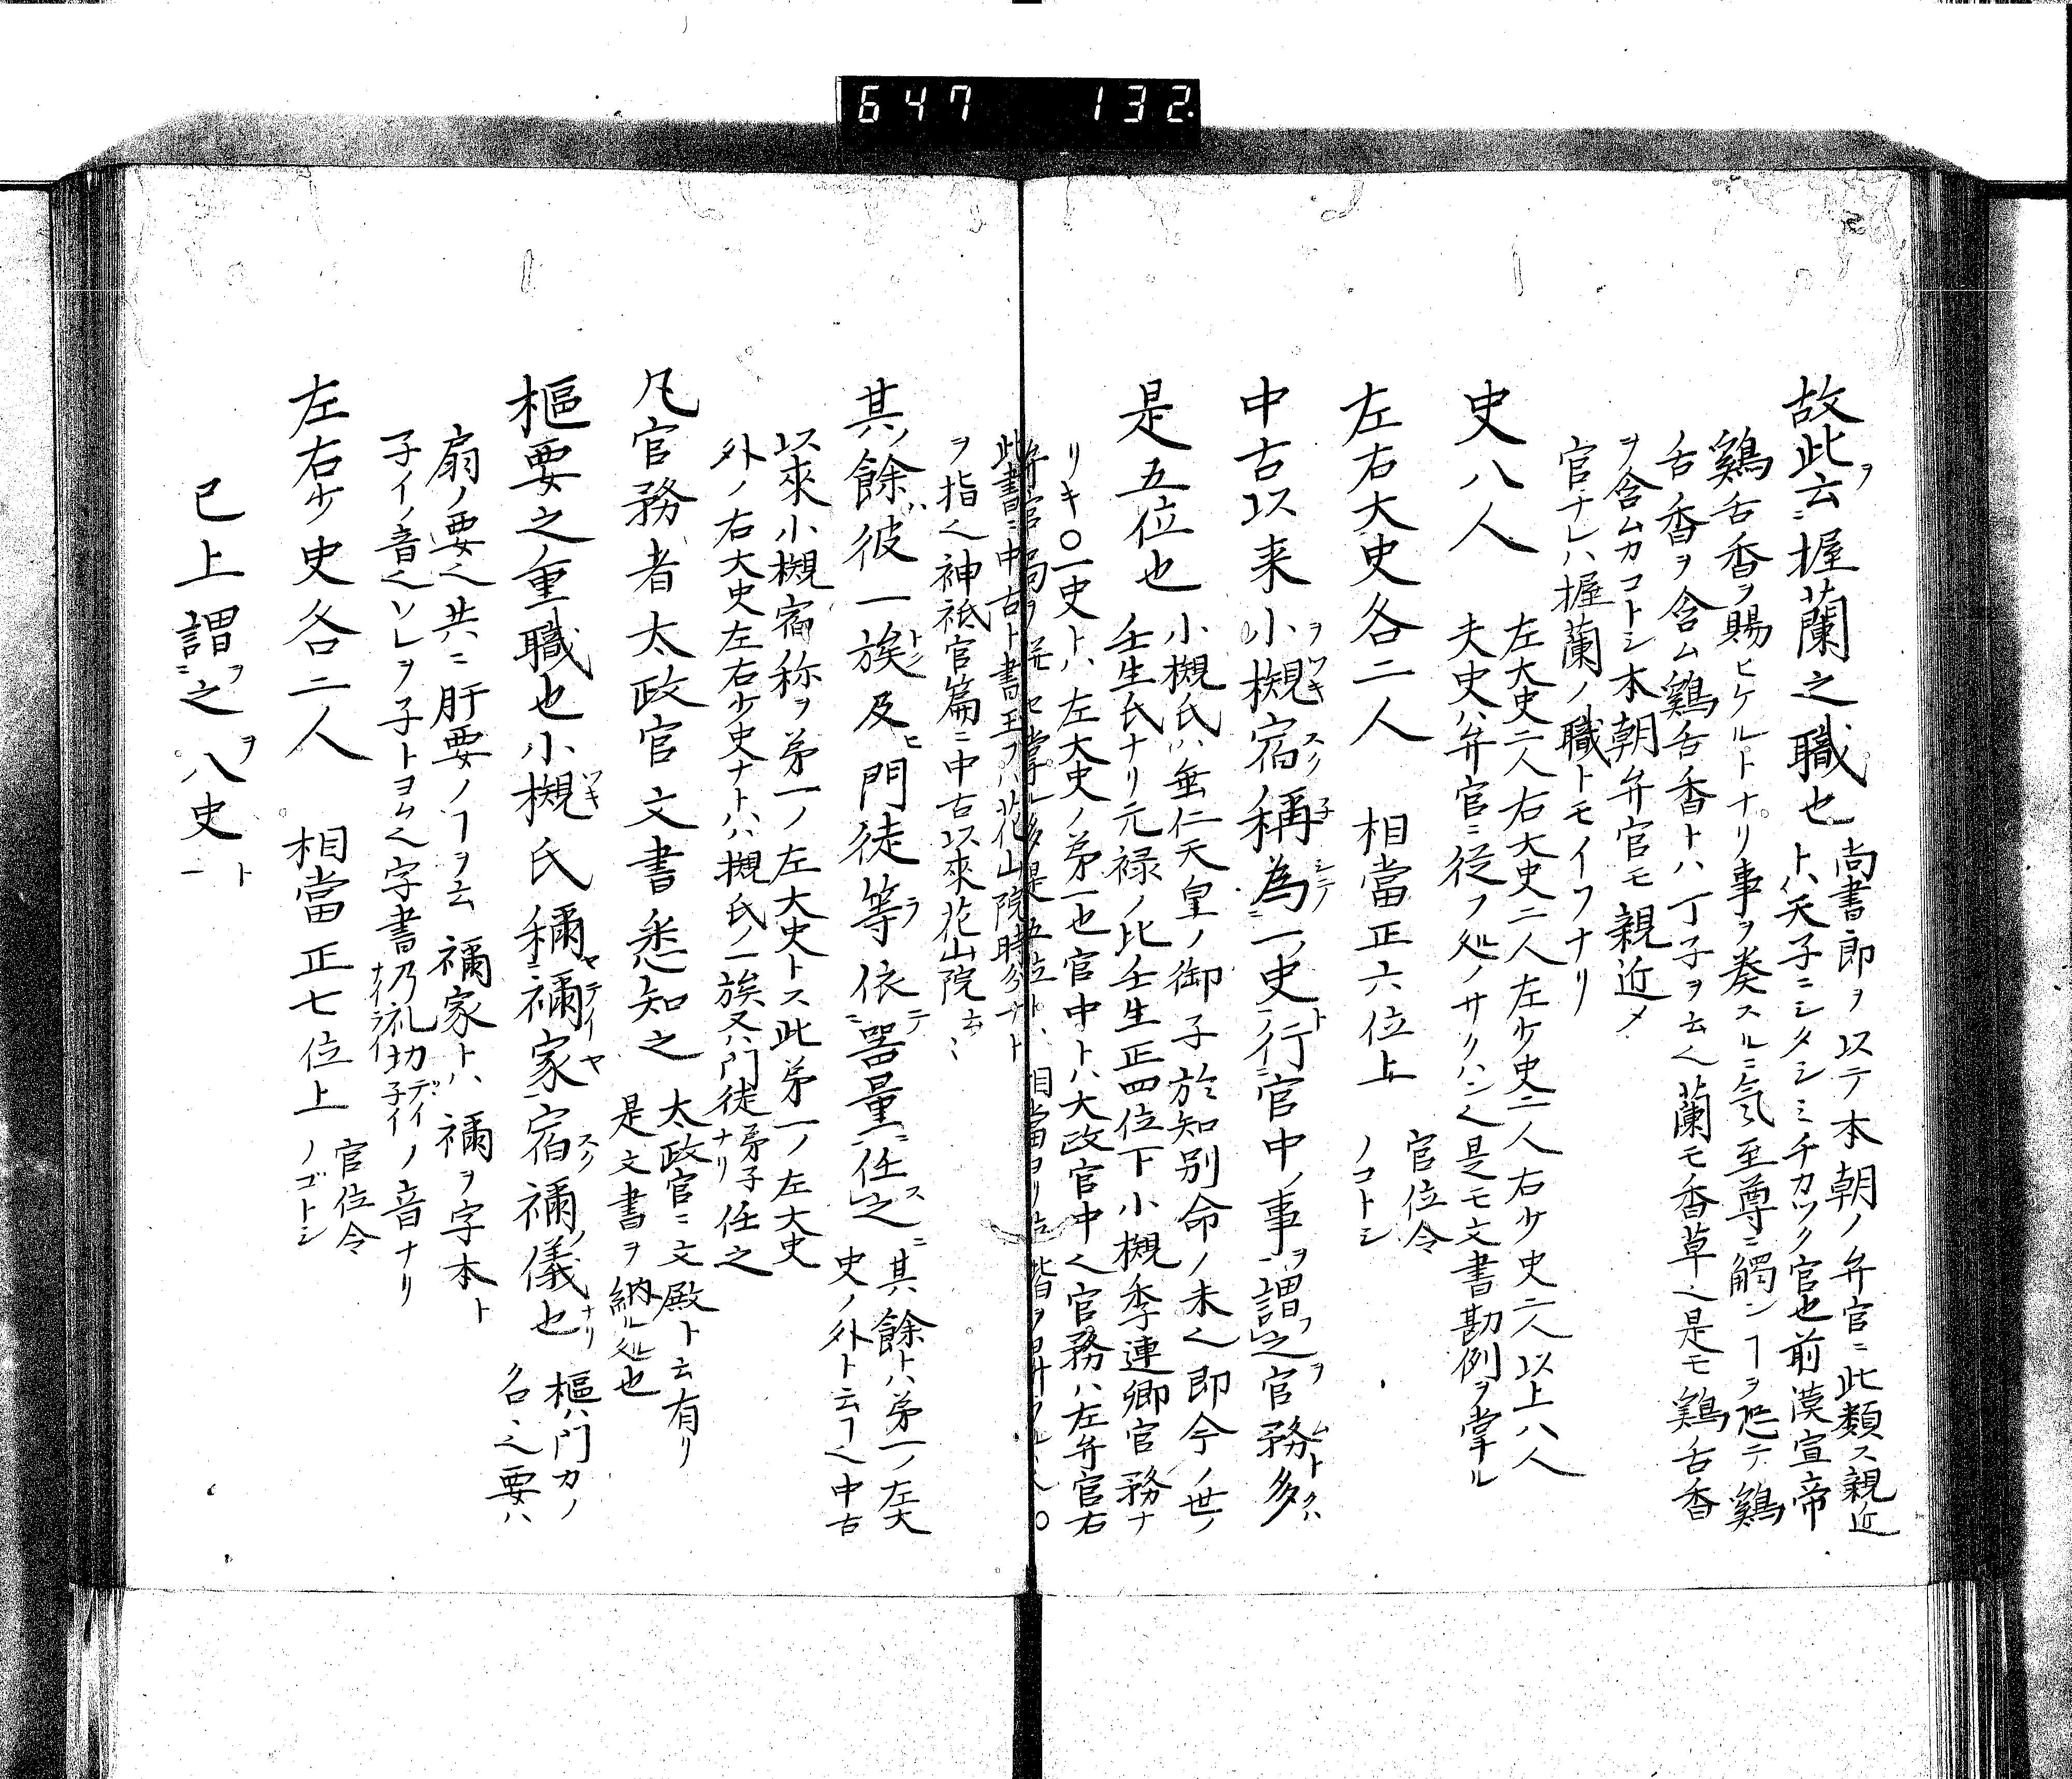 647 132
故此云握蘭之職也 尚書郎ヲ以テ本朝ノ弁官ニ此類ス親近
トハ天子ニシタシミチカツク官也前漢宣帝
鷄舌香ヲ賜ヒケルトナリ事ヲ奏スルニ気至尊ニ觸ンヿヲ恐テ鷄
舌香ヲ含ム鷄舌香トハ丁子ヲ云〱蘭モ香草〱是モ鷄舌香
ヲ含ムカコトシ本朝弁官モ親近ノ
官ナレハ握蘭ノ職トモイフナリ
史八人 左大史二人右大史二人左少史二人右少史二人以上八人
夫史ハ弁官ニ従フ処ノサクハン〱是モ文書勘例ヲ掌ル
左右大史各二人 相當正六位上 官位令
ノコトシ
中古以来小槻宿祢為一史行官中ノ事謂之官務多
是五位也 小槻氏ハ垂仁天皇ノ御子於知別命ノ末〱即今ノ世ノ
壬生氏ナリ元禄ノ比壬生正四位下小槻季連卿官務ナ
リキ〇一史トハ左大史ノ第一也官中トハ大政官中〱官務ハ左弁官右
此書ニ中古ト書玉フハ花山院時分ナト
ヲ指〱神祇官篇ニ中古以來花山院云〻
其ノ餘ハ彼一族及門徒等依噐量任之 其餘トハ第一ノ左大
史ノ外ト云ヿ〱中古
以來小槻宿祢ヲ第一ノ左大史トス此第一ノ左大史
外ノ右大史左右少史ナトハ槻氏ノ一族又ハ門徒弟子ナリ任之
凡官務者太政官文書悉知之 太政官ニ文殿ト云有リ
是文書ヲ納ル処也
樞要之重職也小槻氏稱禰家宿禰儀也 樞ハ門カノ
名〻之要ハ
扇ノ要〱共ニ肝要ノヿヲ云 禰家トハ禰ヲ字本ト
子イノ音〱ソレヲ子トヨム〱字書乃礼切子イノ音ナリ
左右少史各二人 相當正七位上 官位令
ノゴトシ
已上謂之八史